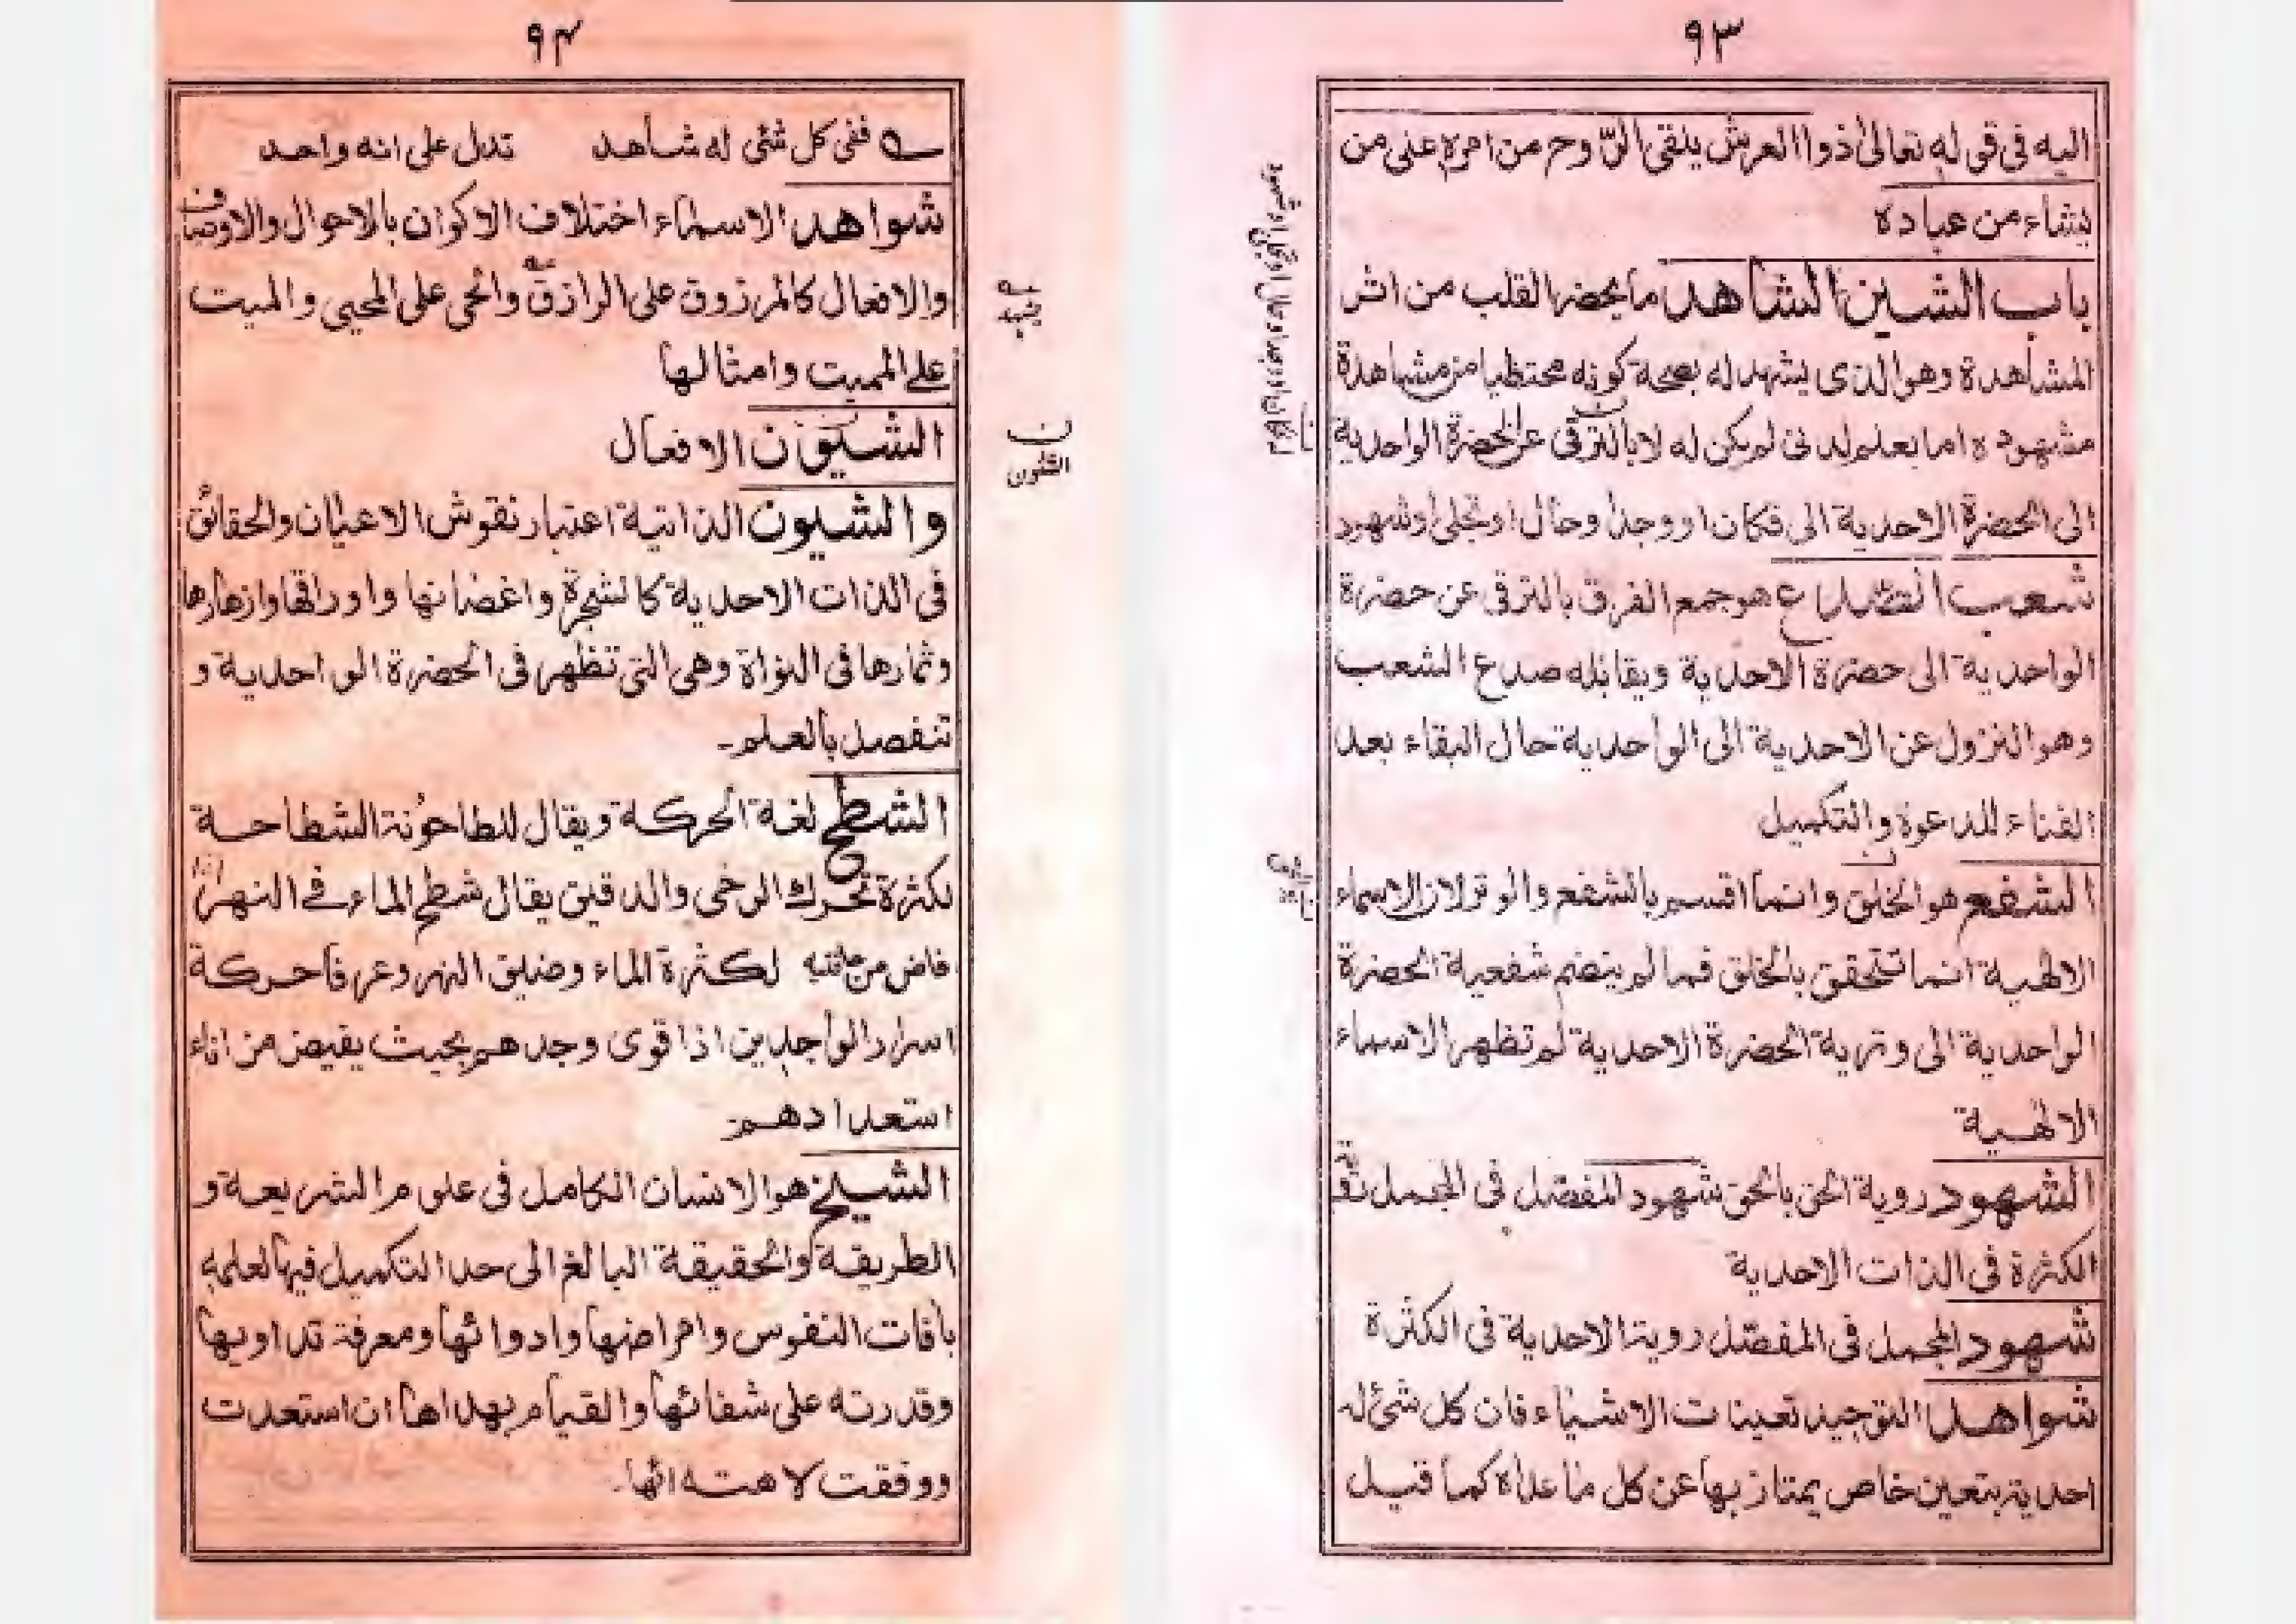 ٩٣
اليه فى قوله تعالىٰ ذو العرش يلقى الرّوح من امره على من
يشاء من عباده
باب الشين الشاهد ما يحضر القلب من اثر
المشاهدة وهو الذى يشهد له بصحة كونه محتظيا من مشاهدة
مشهوده اما بعلم لدنى لم يكن له لا بالترقى عن الحضرة الواحدية
الى الحضرة الاحدية الى فكان او وجد وحال او تجلى او شهود
شعب الصداع هو جمع الفرق بالترقى عن حضرة
الواحدية الى حضرة الاحدية ويقابله صدع الشعب
وهو النزول عن الاحدية الى الواحدية حال البقاء بعد
الفناء للدعوة والتكميل
الشفع هو الخلق وانما اقسم بالشفع والوتر لان الاسماء
الالهية انما تتحقق بالخلق فما لم ينضم شفعية الحضرة
الواحدية الى وترية الحضرة الاحدية لم تظهر الاسماء
الالٰهية
الشهود روية الحق بالحق شهود المفصل فى المجمل
الكثرة فى الذات الاحدية
شهود المجمل فى المفصّل روية الاحدية فى الكثرة
شواهد التوحيد تعينات الاشياء فان كل شئ له
احدية بتعين خاص يمتاز بها عن كل ما عداه كما قيل
٩٤
ففى كل شئى له شاهد تدل على انه واحد
شواهد الاسماء اختلاف الاكوان بالاحوال والاوصاف
والافعال كالمرزوق على الرازق والحى على المحيى والميت
على المميت وامثالها
الشيؤن الافعال
يه
ينبه
ن
الشئون
والشيون الذاتية اعتبار نقوش الاعيان والحقائق
فى الذات الاحدية كالشجرة واغضانها واوراقها وازهارها
وثمارها فى النواة وهى التى تظهر فى الحضرة الواحدية و
تنفصل بالعلم۔
الشطح لغة الحركة ويقال للطاحونة الشطاحة
لكثرة تحرك الرخى والدقيق يقال شطح الماء فے النهر اذا
فاض من حافتيه لكثرة الماء وضيق النهر وعرفا حركة
اسرار الواجدين اذا قوى وجدهم بحيث يفيض من اناء
استعدادهم۔
الشيخ هو الانسان الكامل فى علوم الشريعة و
الطريقة والحقيقة البالغ الى حد التكميل فيها لعلمه
بافات النفوس وامراضها وادوائها ومعرفة تداويها
وقدرته على شفائها والقيام بهداها ان استعدت
ووفقت لاهتدائها۔